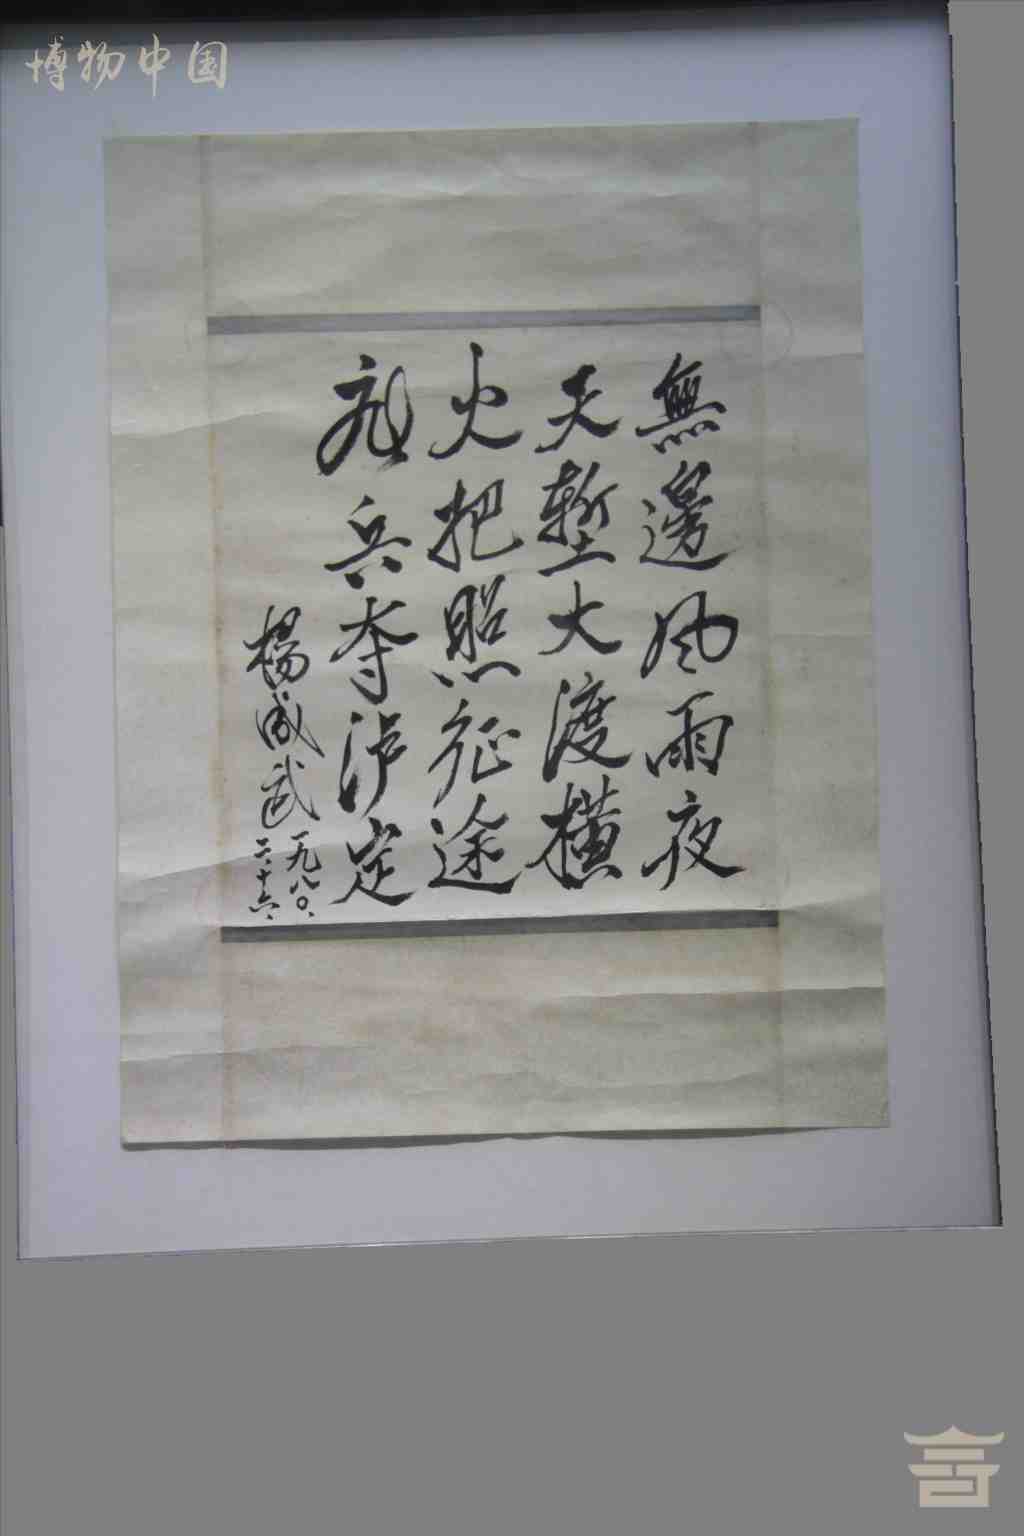 博物中国
無邊風雨夜
天塹大渡橫
火把照征途
飛兵夺泸定
楊成武
一九八〇、
二、十六、